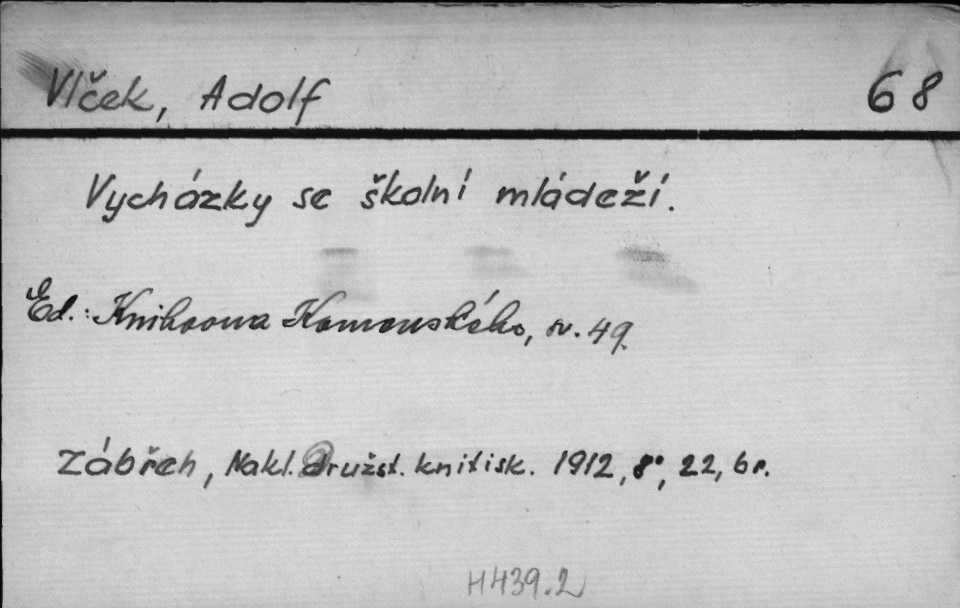 Vlček, Adolf 68
Vycházky se školní mládeží.
Ed.: Knihovna Komenského, sv. 49.
Zábřeh, Nakl. družst. knitisk. 1912, 8°, 22, 6 r.
H439.2